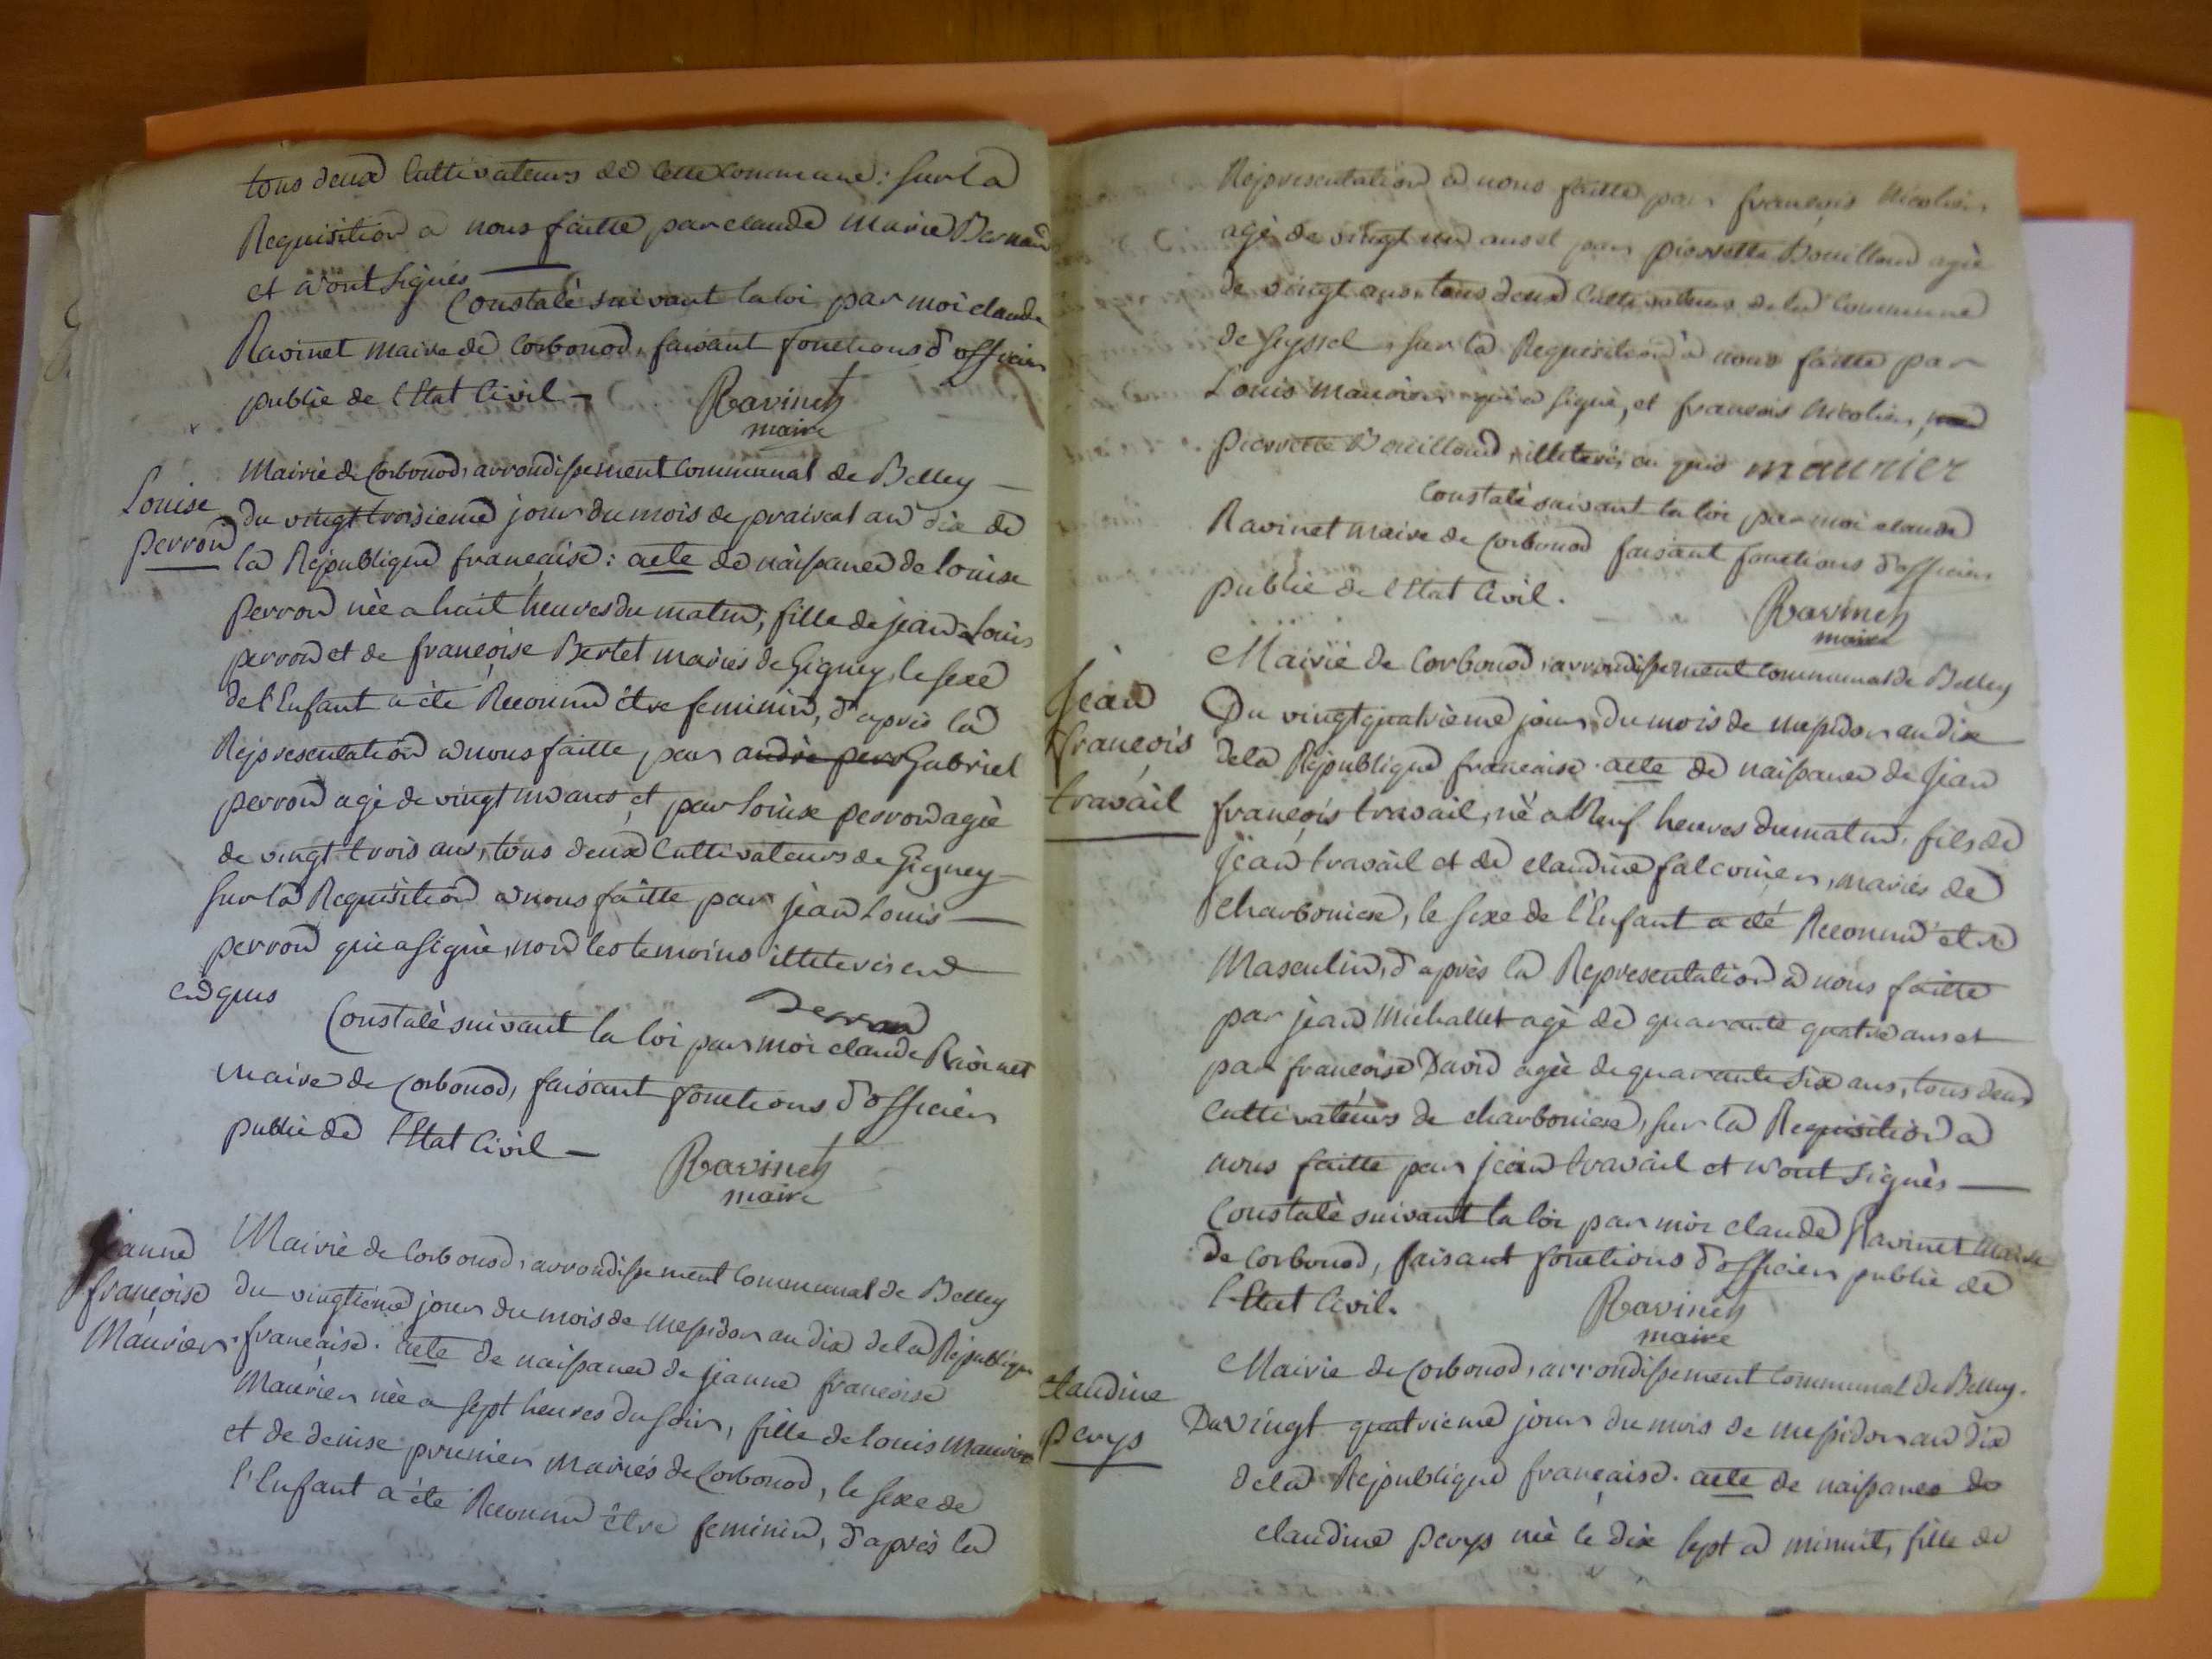 tous deux Cultivateurs de cette commune: sur la
Requisition a nous faitte par claude marie Bernard
et n'ont Signés
Constaté suivant la loi par moi claude
Ravinet maire de Corbonod, faisant fonctions d'officier
public de l'Etat Civil —
Ravinet
maire
Mairie de Corbonod, arrondissement Communal de Belley —
Louise
perron
du vingt troisieme jour du mois de prairial an dix de
la République française: acte de naissance de louise
perron née a huit heures du matin, fille de jean Louis
perron et de françoise Bertet mariés de Gigney, le sexe
de l'Enfant a éte Reconnu être feminin, d'après la
Représentation a nous faitte, par andré perr Gabriel
perron agé de vingt un ans, et par louise perron agée
de vingt trois ans, tous deux Cultivateurs de Gigney —
sur la Requisition a nous faitte par jean Louis —
perron qui a signé, non les temoins illiterés en
en quis
perron
Constalé suivant la loi par moi claude Ravinet
maire de Corbonod, faisant fonctions d'officier
public de l'Etat Civil —
Ravinet
maire
jeanne
françoise
Maurier
Mairie de Corbonod, arrondissement Communal de Belley
du vingtieme jour du mois de messidor an dix de la République
française. acte de naissance de jeanne françoise
Maurier née a sept heures du soir, fille de louis maurier
et de denise premier mariés de Corbonod, le sexe de
l'Enfant a éte Reconnu être feminin, d'après la
Représentation a nous faitte par françois Nicolier
agé de vingt un ans et par pierrette Bouilloud agée
de vingt ans, tous deux Cultivateurs de la Commune
de Seyssel, sur la Requisition a nous faitte par
Louis maurier qui a signé, et françois Nicolier,
pierrette Bouilloud illiterés en quis maurier
Constalé suivant la loi par moi claude
Ravinet maire de Corbonod faisant fonctions d'officier
public de l'Etat Civil.
Ravinet
maire
Jean
françois
travail
Mairie de Corbonod, arrondissement Communal de Belley
Du vingt quatrieme jour du mois de messidor an dix
de la République française. acte de naissance de Jean
françois travail, né a Neuf heures du matin, fils de
Jean travail et de claudine falconier, mariés de
charboniere, le sexe de l'Enfant a été Reconnu etre
Masculin, d'après la Représentation a nous faitte
par jean Michallet agé de quarante quatre ans et
par françoise David agée de quarante six ans, tous deux
Cultivateurs de charboniere, sur la Requisition a
nous faitte par jean travail et n'ont signés —
Constalé suivant la loi par moi claude Ravinet Maire
de Corbonod, faisant fonctions d'officier public de
l'Etat Civil.
Ravinet
maire
claudine
perys
Mairie de Corbonod, arrondissement Communal de Belley.
Du vingt quatrieme jour du mois de messidor an dix
de la République française. acte de naissance de
claudine perys née le dix sept a minuit, fille de